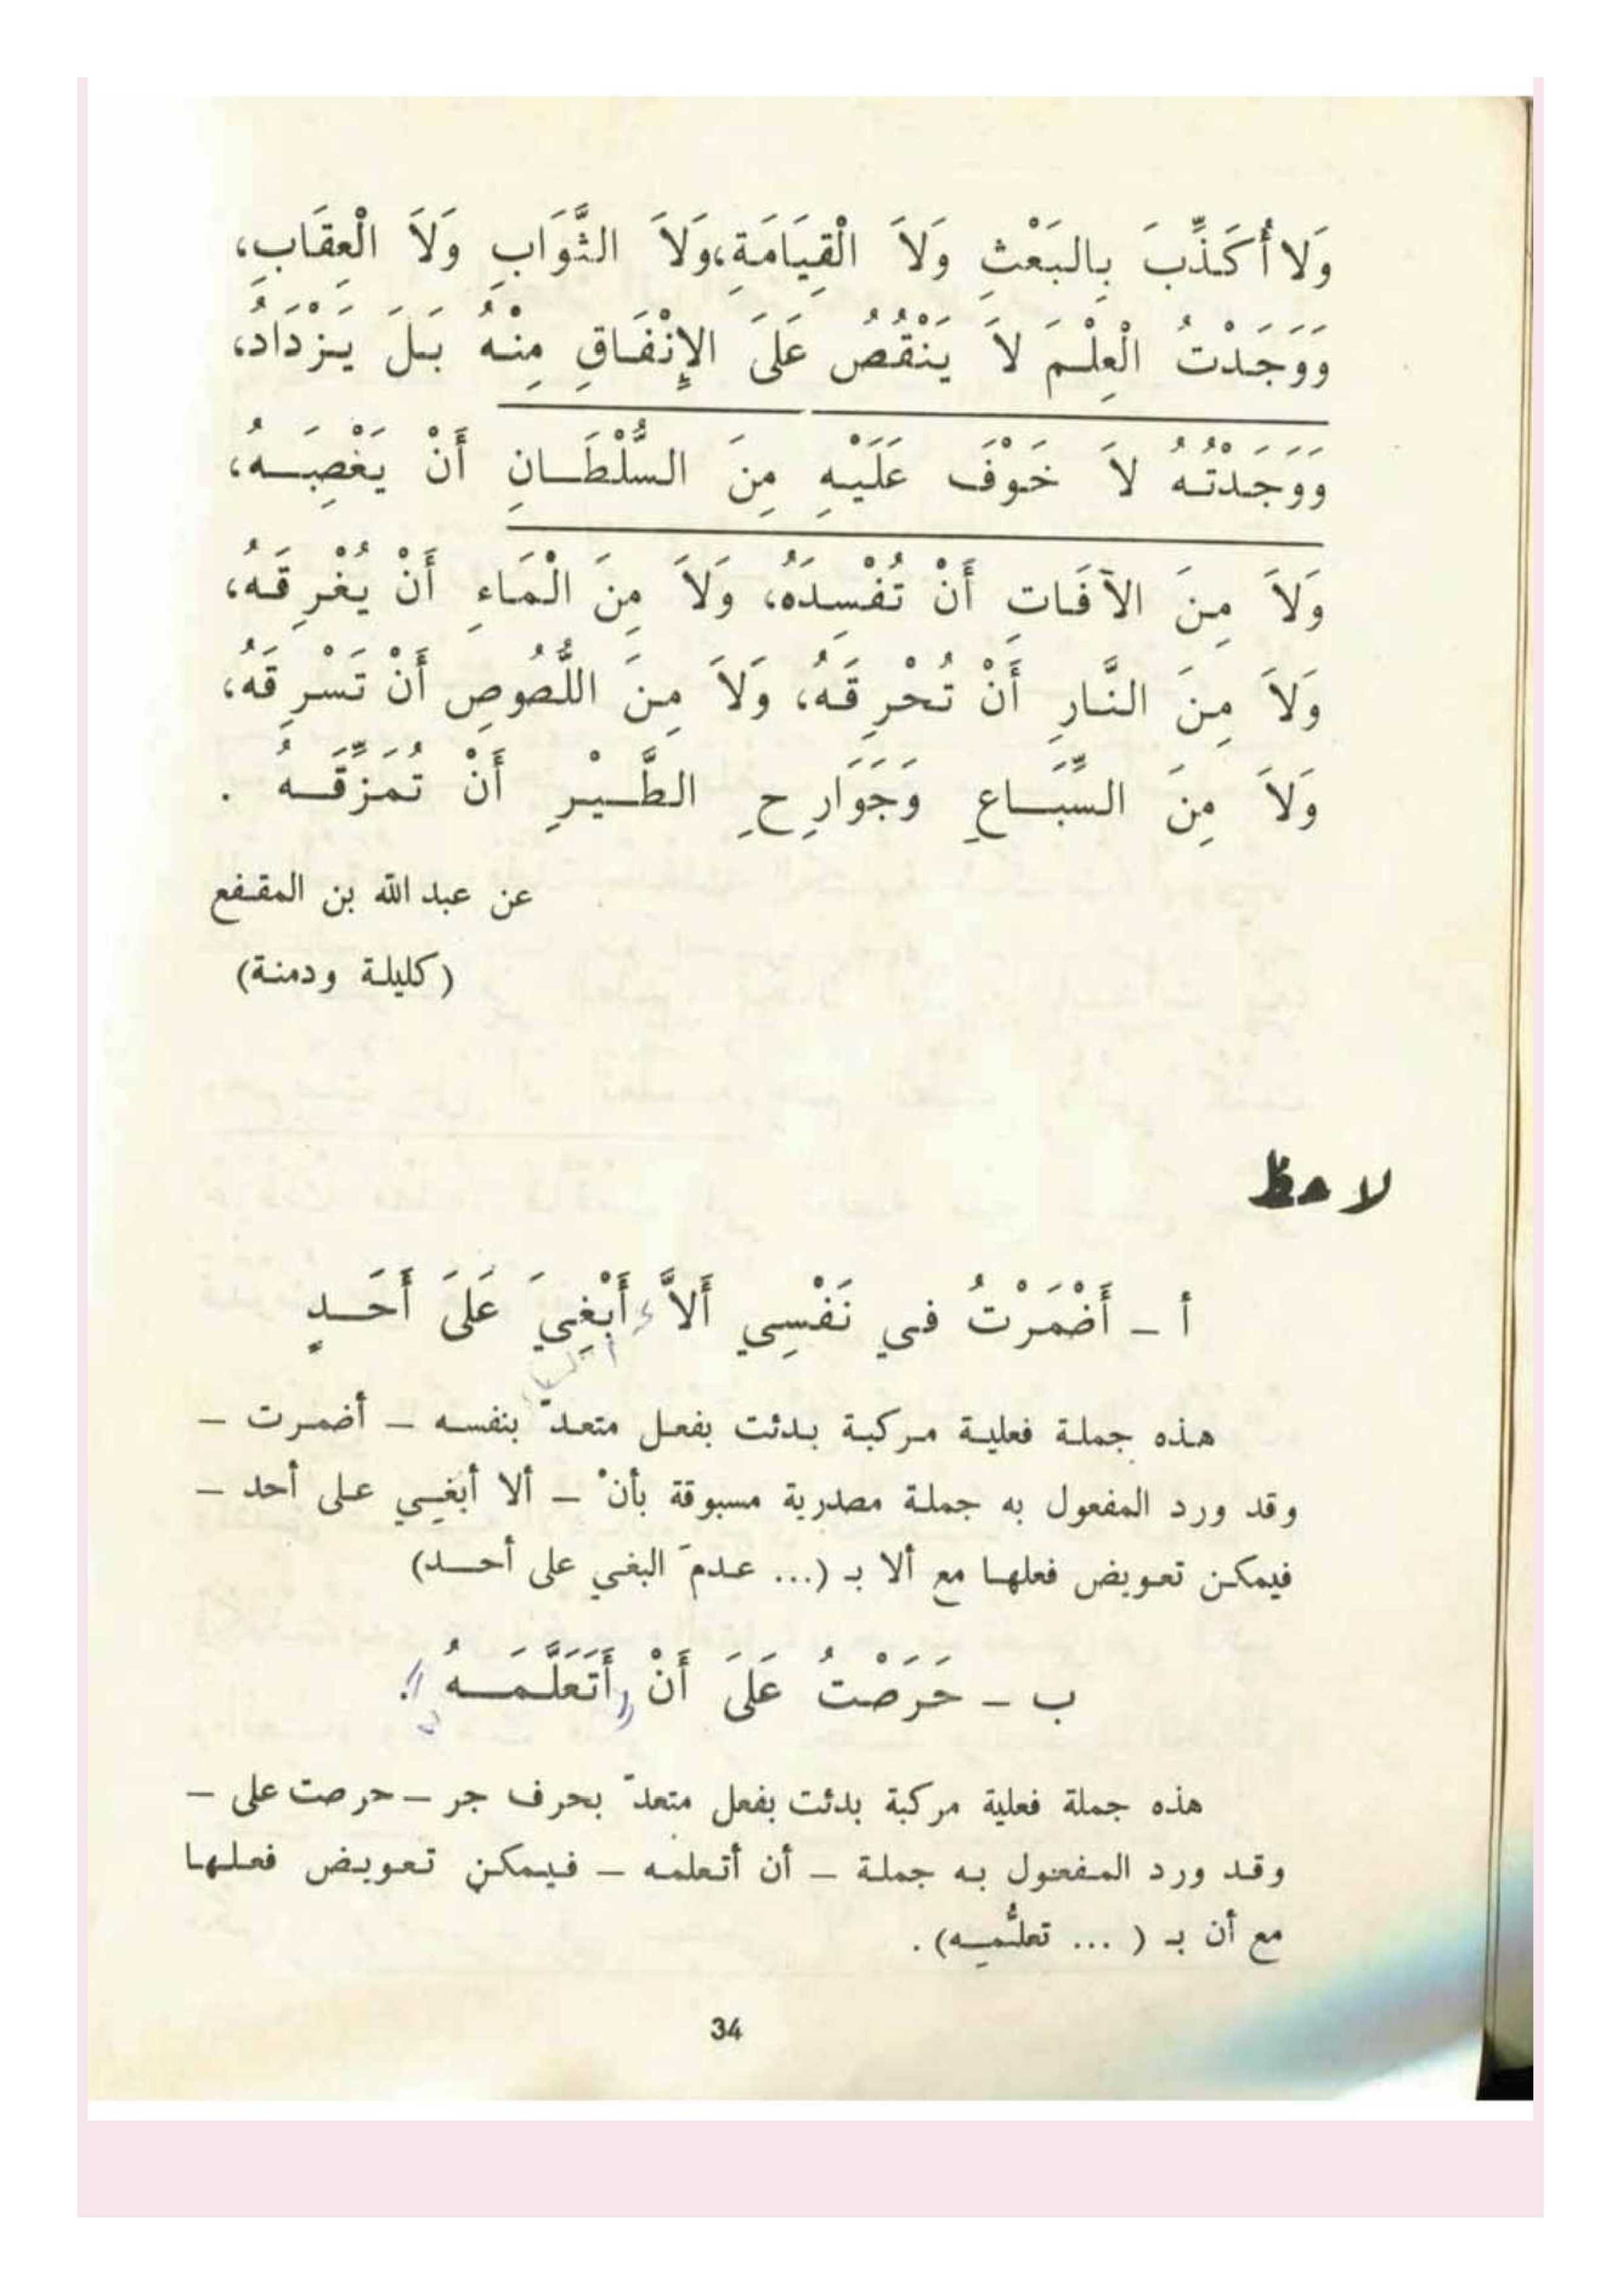 وَلاَ أُكَذِّبَ بِالبَعْثِ وَلاَ الْقِيَامَةِ، وَلاَ الثَّوَابِ وَلاَ الْعِقَابِ،
وَوَجَدْتُ الْعِلْمَ لاَ يَنْقُصُ عَلَىَ الإِنْفَاقِ مِنْهُ بَلَ يَزْدَادُ،
وَوَجَدْتُهُ لاَ خَوْفَ عَلَيْهِ مِنَ السُّلْطَانِ أَنْ يَغْصِبَهُ،
وَلاَ مِنَ الآفَاتِ أَنْ تُفْسِدَهُ، وَلاَ مِنَ الْمَاءِ أَنْ يُغْرِقَهُ،
وَلاَ مِنَ النَّارِ أَنْ تُحْرِقَهُ، وَلاَ مِنَ اللُّصُوصِ أَنْ تَسْرِقَهُ،
وَلاَ مِنَ السِّبَاعِ وَجَوَارِحِ الطَّيْرِ أَنْ تُمَزِّقَهُ .
عن عبد الله بن المقفع
(كليلة ودمنة)
لاحظ
أ – أَضْمَرْتُ في نَفْسِي أَلاَّ أَبْغِيَ عَلَىَ أَحَدٍ
هذه جملة فعلية مركبة بدئت بفعل متعدّ بنفسه – أضمرت –
وقد ورد المفعول به جملة مصدرية مسبوقة بأنْ – ألا أبغي على أحد –
فيمكن تعويض فعلها مع ألا بـ (... عدمَ البغي على أحد)
ب – حَرَصْتُ عَلَىَ أَنْ أَتَعَلَّمَهُ .
هذه جملة فعلية مركبة بدئت بفعل متعدّ بحرف جر – حرصت على –
وقد ورد المفعول به جملة – أن أتعلمه – فيمكن تعويض فعلها
مع أن بـ ( ... تعلُّمِه) .
34